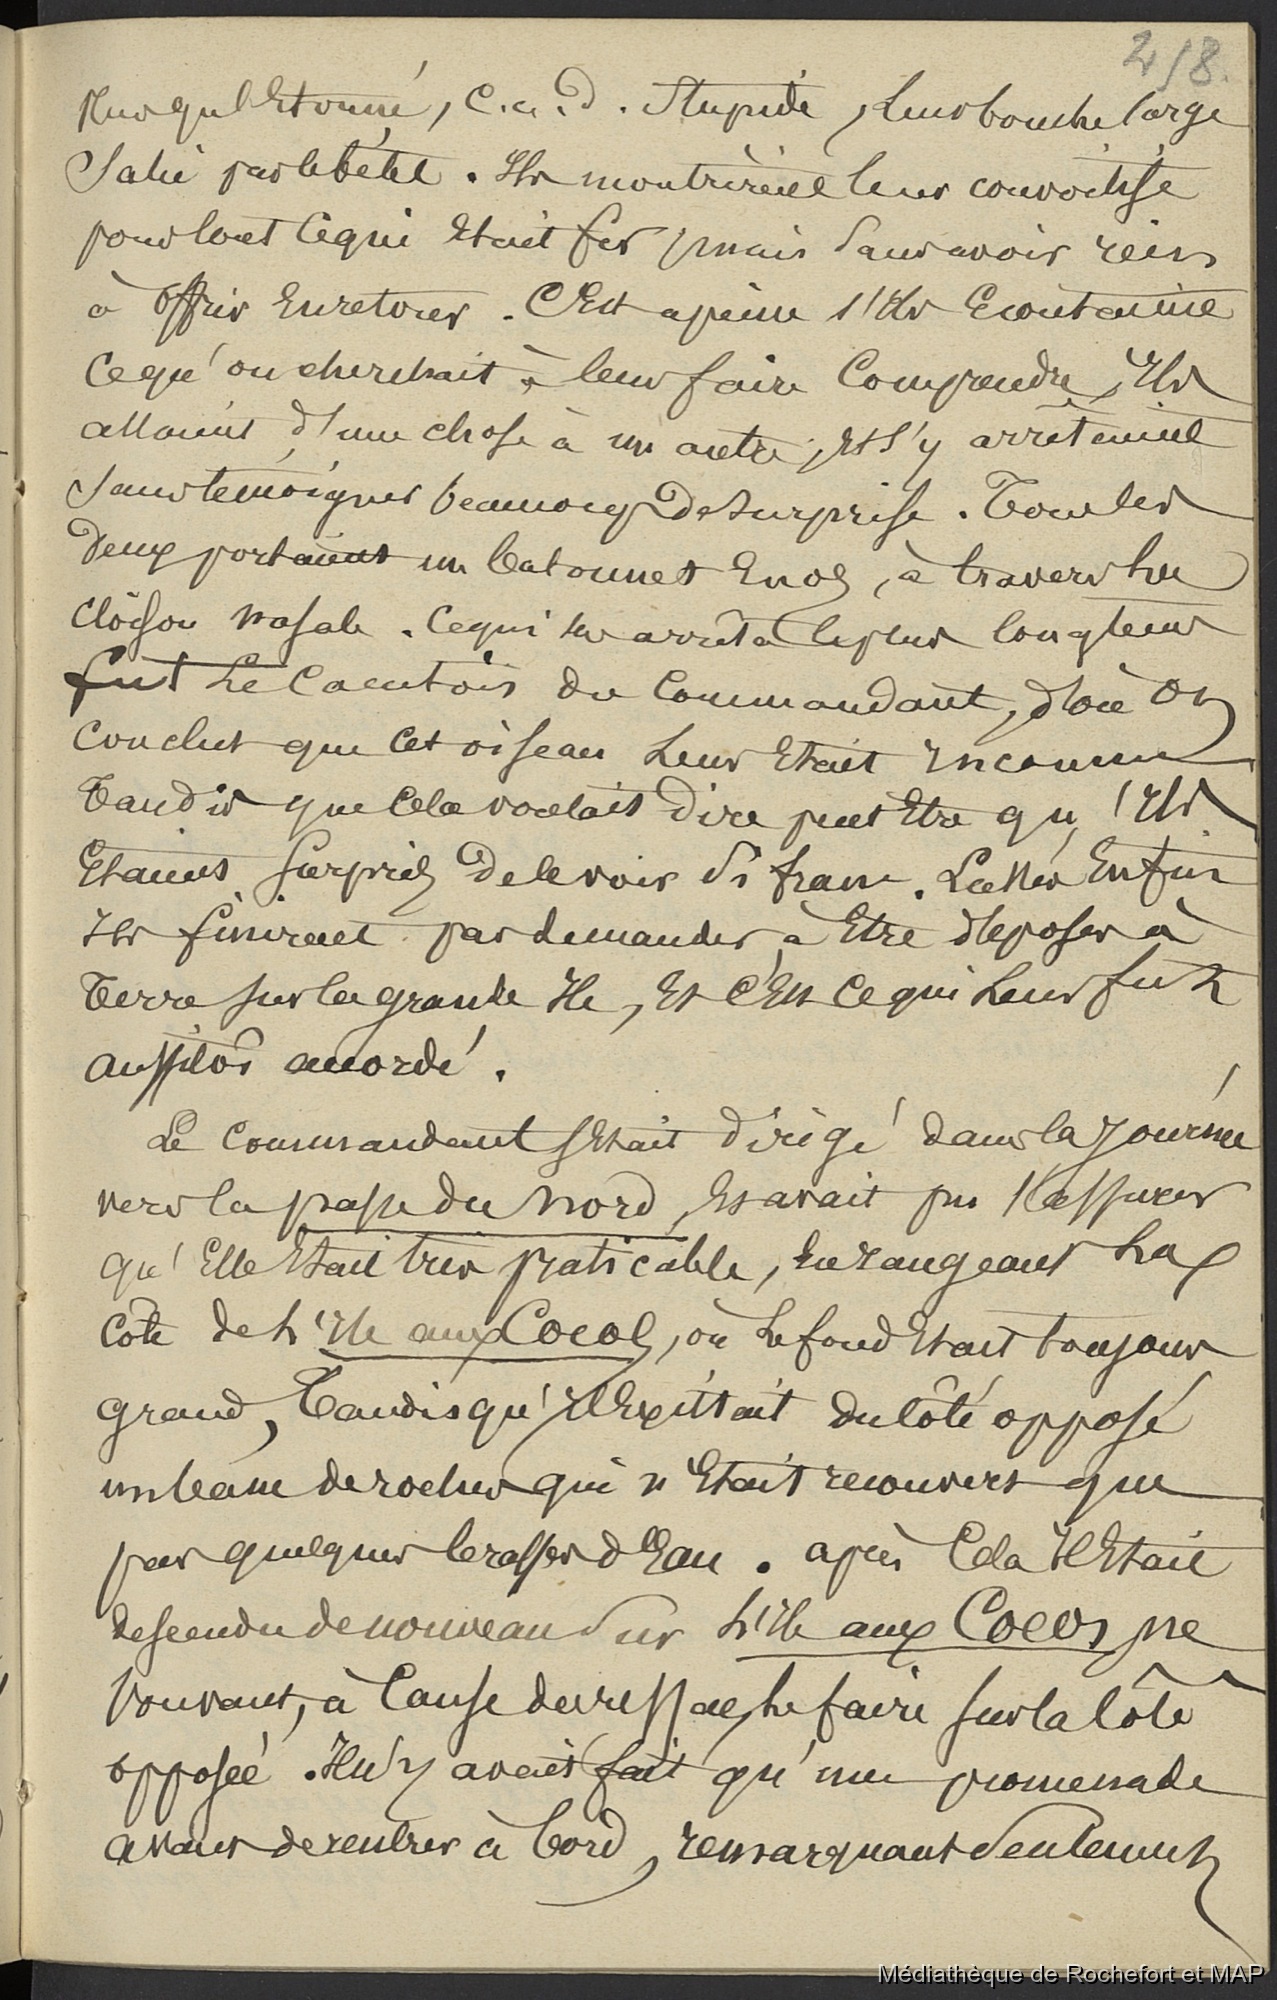 218.
Plus qu'Etonné, c.a.d. Stupide, Leur bouche large
Salie par le bétel. Ils montrèrent leur convoitise
pour tout ce qui Etait fer, mais Sans avoir rien
à offrir En retour. C'Est a peine s'Ils Ecoutaient
Ce qu'on cherchait à leur faire Comprendre, Ils
allaient d'une chose à un autre, Et s'y arrêtaient
Sans témoigner beaucoup De Surprise. Tous les
Deux portaient un batonnet En os, à travers La
cloison nasale. Ce qui les arrêta le plus longtems
fut Le Cacatois du Commandant, d'où On
Conclut que Cet oiseau Leur Etait Inconnu
Tandis que Cela voulait Dire peut Etre qu'Ils
Etaient Surpris De le voir Si franc. Lassés Enfin
Ils finirent par demander à Etre déposés à
Terre sur la grande Ile, Et C'Est Ce qui Leur fut
aussitôt accordé.
Le Commandant s'Etait Dirigé dans la Journée
vers la passe du Nord, Et avait pu s'assurer
qu'Elle Etait très praticable, En rangeant La
Côte de L'Ile aux Cocos, où Le fond Etait toujours
grand, Tandis qu'Il Existait du Côté opposé
un banc de roches qui n'Etait recouvert que
par quelques brasses d'Eau. après Cela Il Etait
descendu de nouveau Sur L'Ile aux Cocos, ne
Pouvant, à Cause du ressac, Le faire sur la Côte
opposée. Il n'y avait fait qu'une promenade
avant de rentrer à bord, remarquant Seulement
Médiathèque de Rochefort et MAP